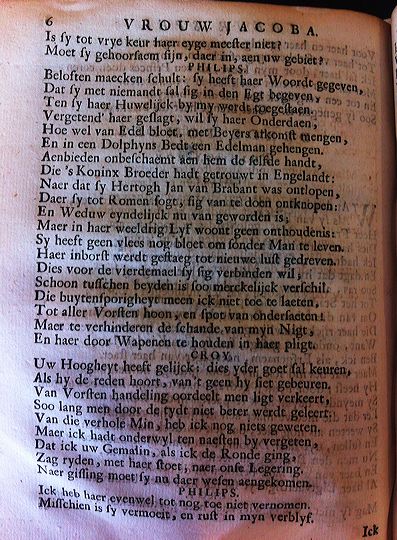 6 VROUW JACOBA.
Is sy tot vrye keur haer eyge meester niet?
Moet sy gehoorsaem sijn, daer in, aen uw gebiet?
PHILIPS.
Beloften maecken schult: sy heeft haer Woordt gegeven,
Dat sy met niemandt sal sig in den Egt begeven,
Ten sy haer Huwelijck by my wordt toegestaen.
Vergetend' haer geslagt, wil sy haer Onderdaen,
Hoe wel van Edel bloet, met Beyers afkomst mengen,
En in een Dolphyns Bedt een Edelman gehengen.
Aenbieden onbeschaemt aen hem de selfde handt,
Die 's Koninx Broeder hadt getrouwt in Engelandt:
Naer dat sy Hertogh Jan van Brabant was ontlopen,
Daer sy tot Romen sogt, sig van te doen ontknopen:
En Weduw eyndelijck nu van geworden is;
Maer in haer weeldrig Lyf woont geen onthoudenis:
Sy heeft geen vlees nog bloet om sonder Man te leven.
Haer inborst werdt gestaeg tot nieuwe lust gedreven.
Dies voor de vierdemael sy sig verbinden wil;
Schoon tusschen beyden is soo merckelijck verschil.
Die buytensporigheyt meen ick niet toe te laeten,
Tot aller Vorsten hoon, en spot van ondersaeten:
Maer te verhinderen de schande van myn Nigt,
En haer door Wapenen te houden in haer pligt.
CROY.
Uw Hoogheyt heeft gelijck: dies yder goet sal keuren,
Als hy de reden hoort, van't geen hy siet gebeuren.
Van Vorsten handeling oordeelt men ligt verkeert,
Soo lang men door de tydt niet beter werdt geleert:
Van die verhole Min, heb ick nog niets geweten.
Maer ick hadt onderwyl ten naesten by vergeten,
Dat ick uw Gemalin, als ick de Ronde ging,
Zag ryden, met haer stoet, naer onse Legering.
Naer gissing moet sy nu daer wesen aengekomen.
PHILIPS.
Ick heb haer evenwel tot nog toe niet vernomen.
Misschien is sy vermoeit, en rust in myn verblyf.
Ick